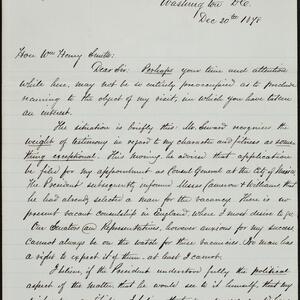 Washington D.C.
Dec 20th 1878
Hon Wm Henry Smith:
Dear Sir: Perhaps your time and attention
while here, may not be so entirely preoccupied as to preclude
naming to the object of my visit, in which you have taken
an interest.
The situation is briefly this: Mr. Seward recognizes the
weight of testimony in regard to my character and fitness as some
thing exceptional. This morning, he advised that application
be filed for my appointment as Consul General at the City of Mexico
The President subsequently informed Messrs Cameron & Williams that
he had already selected a man for the vacancy. There is no
present vacant consulship in England, where I most desire to go.
Our Senators and Representatives, however anxious for my success
cannot always be on the watch for these vacancies. No man has
a right to expect it of them: at least I cannot.
I believe, if the President understood fully the political
aspect of the matter that he would see to it himself, that my